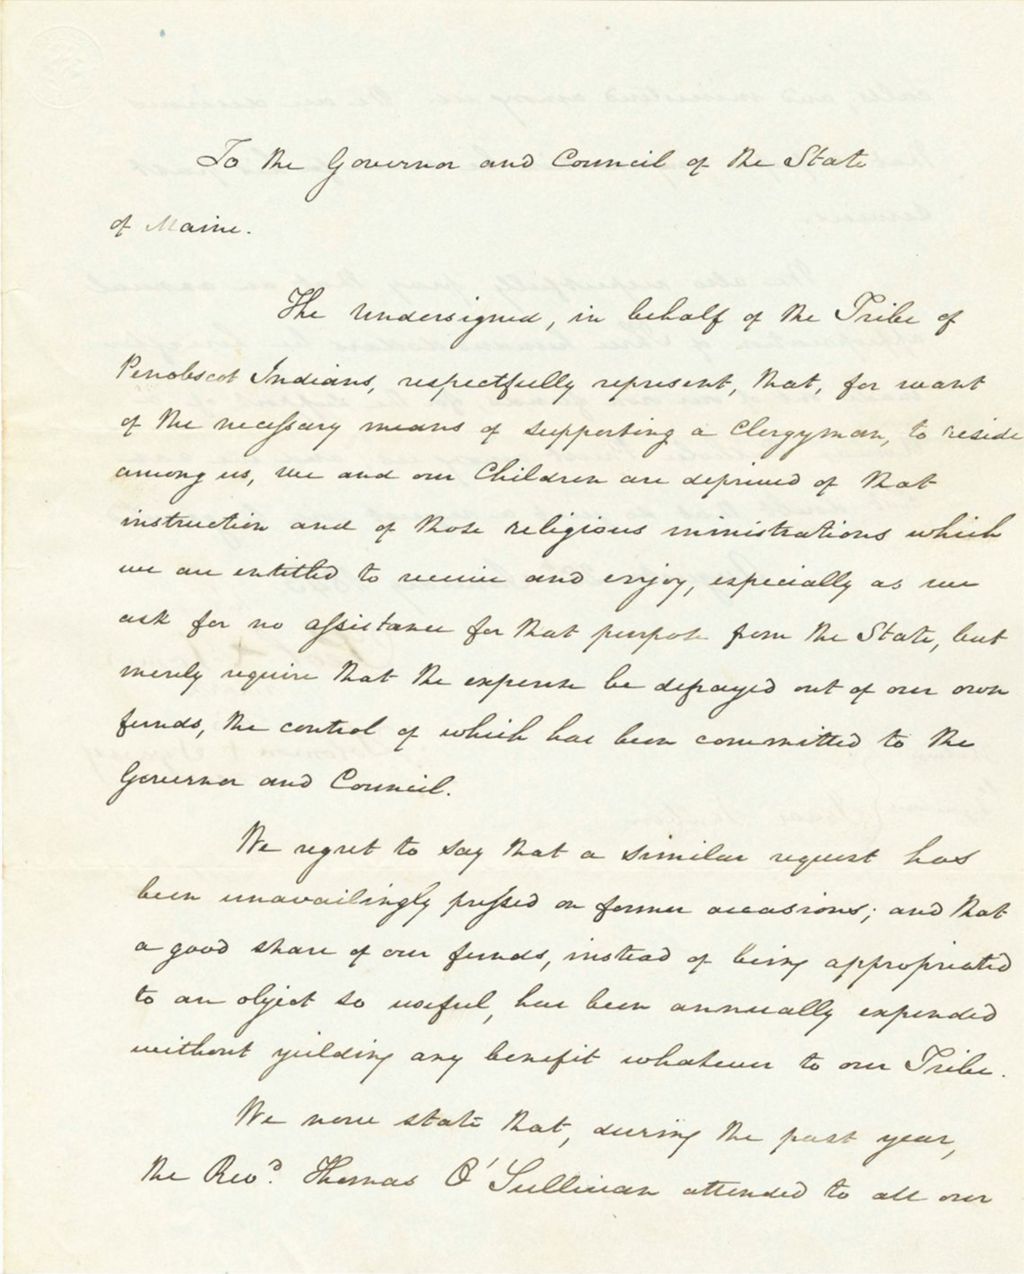 To the Governor and Council of the State
of Maine.
The undersigned, in behalf of the Tribe of
Penobscot Indians, respectfully represent, that, for want
of the necessary means of supporting a Clergyman, to reside
among us, we and our Children are deprived of that
instruction and of those religious ministrations which
we are entitled to receive and enjoy, especially as we
ask for no assistance for that purpose from the State, but
merely require that the expense be defrayed out of our own
funds, the control of which has been committed to the
Governor and Council.
We regret to say that a similar request has
been unavailingly pressed on former occasions; and that
a good share of our funds, instead of being appropriated
to an object so useful, has been annually expended
without yielding any benefit whatever to our Tribe.
We now state that, during the past year,
the Revd. Thomas O'Sullivan attended to all our